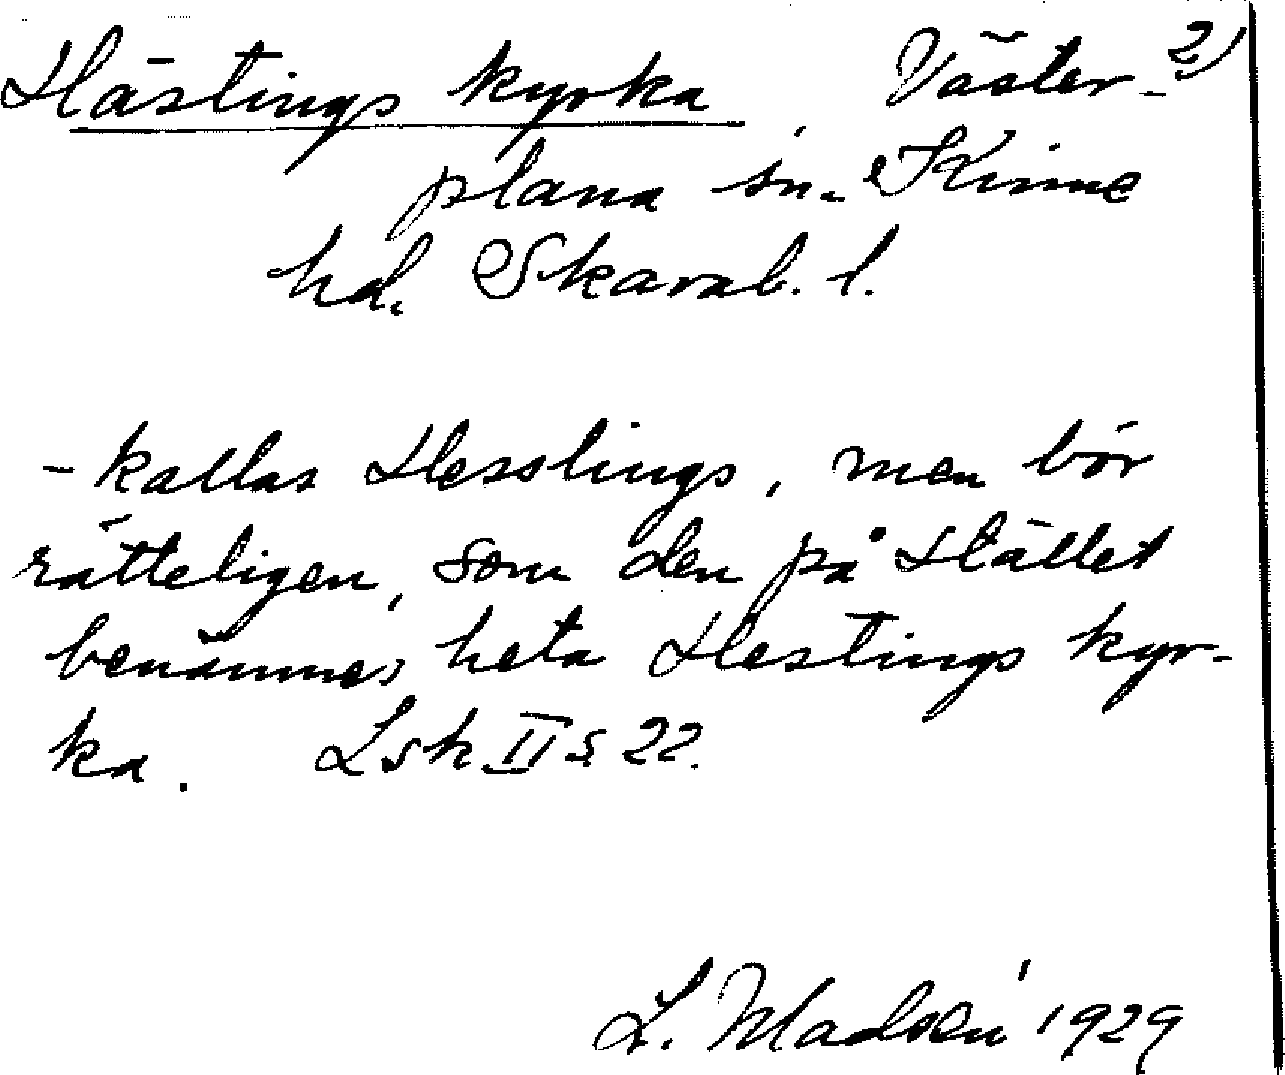 Hästings kyrka, Väster- 2)
plana sn. Kinne
hd. Skarab. l.
- kallas Hesslings, men bör
rätteligen, som den på Stället
benämnes, heta Hestings kyr-
ka. Lsk II s 22.
L. Madsén 1929